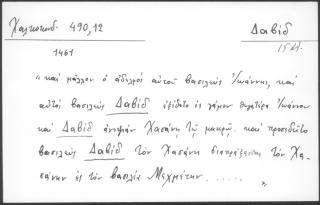 Χαλκοκονδ. 490,12
Δαβίδ
15 αι.
1461
"καὶ μᾶλλον ὁ ἀδελφὸς αὐτοῦ βασιλεὺς Ἰωάννης, καὶ
αὐτὸς βασιλεὺς Δαβίδ ἐξέδοτο ἐς γάμον θυγατέρα Ἰωάννου
καὶ Δαβίδ ἀνεψιὰν Χασάνῃ τῷ μακρῷ. καὶ προσεδεῖτο
βασιλεὺς Δαβίδ τὸν Χασάνην διαπράξασθαι τὸν Χα-
σάνην ἐς τὸν βασιλέα Μεχμέτην. ..... "